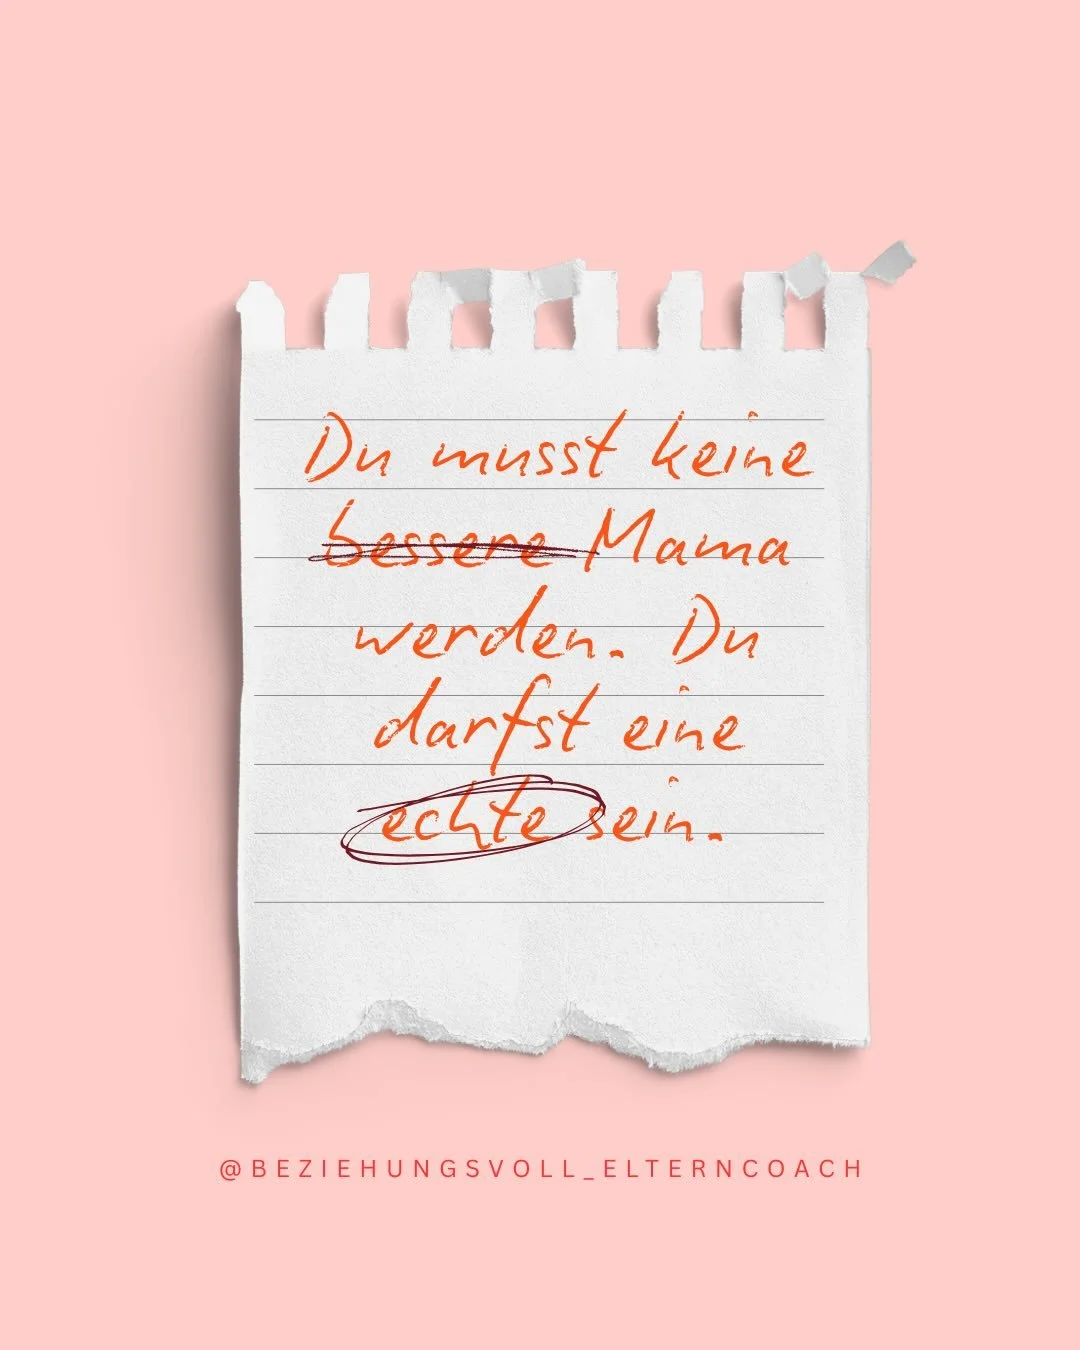 Du musst keine
bessere Mama
werden. Du
darfst eine
echte sein.
@BEZIEHUNGSVOLL_ELTERNCOACH